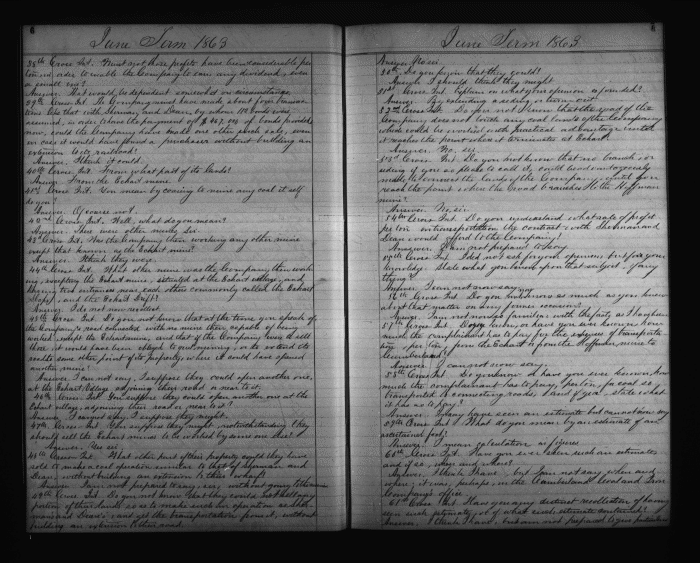 6
June Term 1863
38th Cross Int. Must not those profits have been considerable per
ton in order to enable the Company to earn any dividend, even
a small one?
Answer. That would be dependent somewhat on circumstances.
39th Cross Int. The Company must have made about four transac-
tions like that with Sherman and Dean, by about 1852
assumed, in order to have the payment of $ of bonds provided
now, could the Company have made one other such sale, even
in case it would have found a purchaser without building an
extension to its railroad?
Answer. I think it could.
40th Cross Int. From what part of its lands?
Ans. From the Eckart mine.
41st Cross Int. You mean by coming to mine any coal it self
do you?
Answer. Of course not.
42nd Cross Int. Well, what do you mean?
Answer. There were other mines.
43d Cross Int. Was the Company then working any other mine
except that known as the Eckart mine?
Answer. I think they were.
44th Cross Int. What other mine was the Company then work-
ing, excepting the Eckart mine, situated at the Eckart village, and
having two entrances near each other commonly called the Eckart
Slope, and the Eckart Drift?
Answer. I do not now recollect.
45th Cross Int. Do you not know that at the time you speak of
the Company's road connected with no mine then capable of being
worked, except the Eckart mine, and that if the Company were to sell
there, it would have been obliged to quit mining, or to extend its
road to some other point of its property where it could have opened
another mine?
Answer. I can not say, I suppose they could open another one,
at the Eckart village adjoining their road or near to it.
46th Cross Int. You suppose they could open another one at the
Eckart village, adjoining their road or near to it?
Answer. I cannot say, I suppose they might.
47th Cross Int. You suppose they might, notwithstanding they
should sell the Eckart mines to be worked by some one else?
Answer. Yes sir.
48th Cross Int. What other part of their property could they have
sold to make a coal operation similar to that of Sherman and
Dean, without building an extension to their road?
Answer. I am not prepared to say, without going to the mine.
49th Cross Int. Do you not know that they could not sell any
portion of their lands so as to make such an operation as Sher-
man and Dean's and get the transportation from it, without
building an extension to their road.
6
June Term 1863
Answer. No sir.
50th. Do you say that they could?
Answer. I should think they might.
51st Cross Int. Explain on what your opinion is founded?
Answer. By extending a siding or turn out.
52nd Cross Int. Do you not know that the road of the
Company does not touch any coal lands of the Company
which could be worked with practical advantage until
it reaches the point where it terminates at Eckart?
Answer. No, sir.
53d Cross Int. Do you not know that no branch or
siding if you so please to call it, could be advantageously
made to connect the lands of the Company until you
reach the point where the road branches to the Hoffman
mine?
Answer. No sir.
54th Cross Int. Do you understand what rate of profit
per ton on transportation the contract with Sherman and
Dean would afford to the Company?
Answer. I am not prepared to say.
55th Cross Int. I did not ask for your opinion, but for your
knowledge. State what you know upon that subject, if any
thing?
Answer. I can not now say.
56th Cross Int. Do you not know as much as you knew
about that matter on any former occasion?
Answer. I am not now so familiar with the facts as I have been.
57th Cross Int. Do you know, or have you ever known, how
much the complainant has to pay for the expense of transporta-
tion, per ton, from the Eckart or from the Hoffman mine to
Cumberland?
Answer. I can not now say.
58th Cross Int. Do you know, or have you ever known, how
much the complainant has to pay, per ton, for coal so
transported to connecting roads, and if yea, state what
it has so to pay?
Answer. I may have seen an estimate but cannot now say.
59th Cross Int. What do you mean by an estimate of an
ascertained fact?
Answer. I mean calculation or figures.
60th Cross Int. Have you ever seen such an estimate
and if so, when and where?
Answer. I think I have, but I am not say when and
where; it was, perhaps, in the Cumberland Coal and Iron
Company's office.
61st Cross Int. Have you any distinct recollection of having
seen such estimate, or of what such estimate contained?
Answer. I think I have, but am not prepared to give particulars